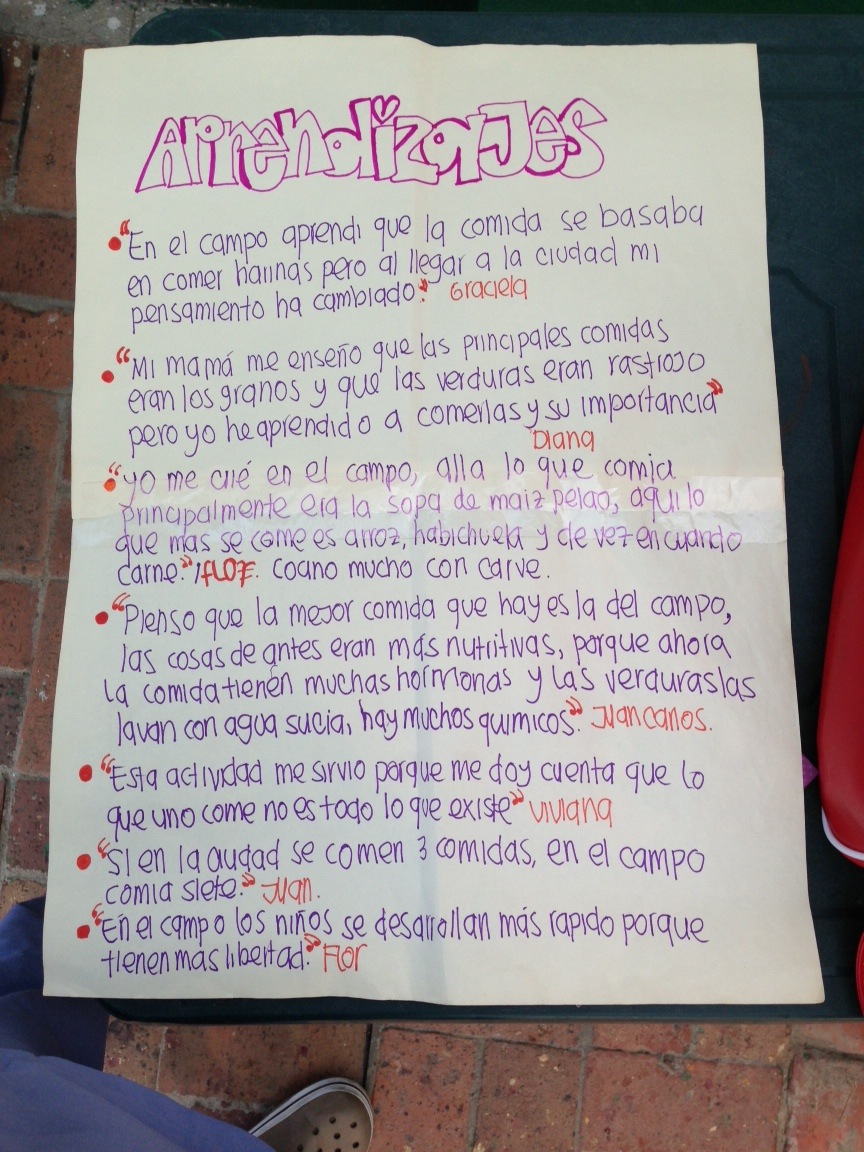 AprendizaJes
• "En el campo aprendi que la comida se basaba
en comer harinas pero al llegar a la ciudad mi
pensamiento ha cambiado." Graciela
• "Mi mamá me enseño que las principales comidas
eran los granos y que las verduras eran rastrojo
pero yo he aprendido a comerlas y su importancia"
Diana
• "yo me crié en el campo, alla lo que comia
principalmente era la sopa de maiz pelao, aqui lo
que mas se come es arroz, habichuela y de vez en cuando
carne." Flor. cocino mucho con carve.
• "Pienso que la mejor comida que hay es la del campo,
las cosas de antes eran más nutritivas, porque ahora
la comida tienen muchas hormonas y las verduras las
lavan con agua sucia, hay muchos quimicos." Juan carlos.
• "Esta actividad me sirvio porque me doy cuenta que lo
que uno come no es todo lo que existe" viviana
• "Si en la ciudad se comen 3 comidas, en el campo
comia siete." Juan.
• "En el campo los niños se desarrollan más rapido porque
tienen mas libertad." Flor